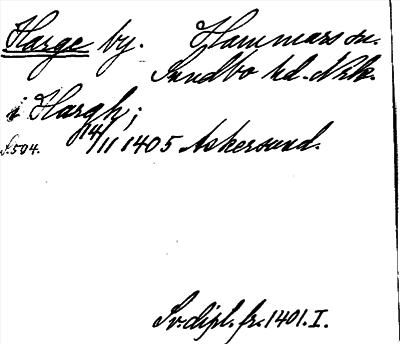 Harge by. Hammars sn.
Sundbo hd. Nrk.
i Hargh;
S. 504. 14/11 1405 Askersund.
Sv. dipl. fr. 1401. I.